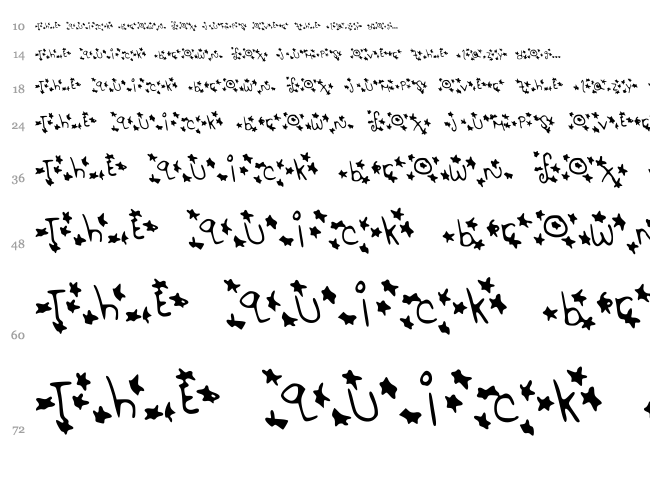 10 The quick brown fox jumps over the lazy dog...
14 The quick brown fox jumps over the lazy dog...
18 The quick brown fox jumps over the lazy
24 The quick brown fox jumps over
36 The quick brown fox
48 The quick brown
60 The quick br
72 The quick